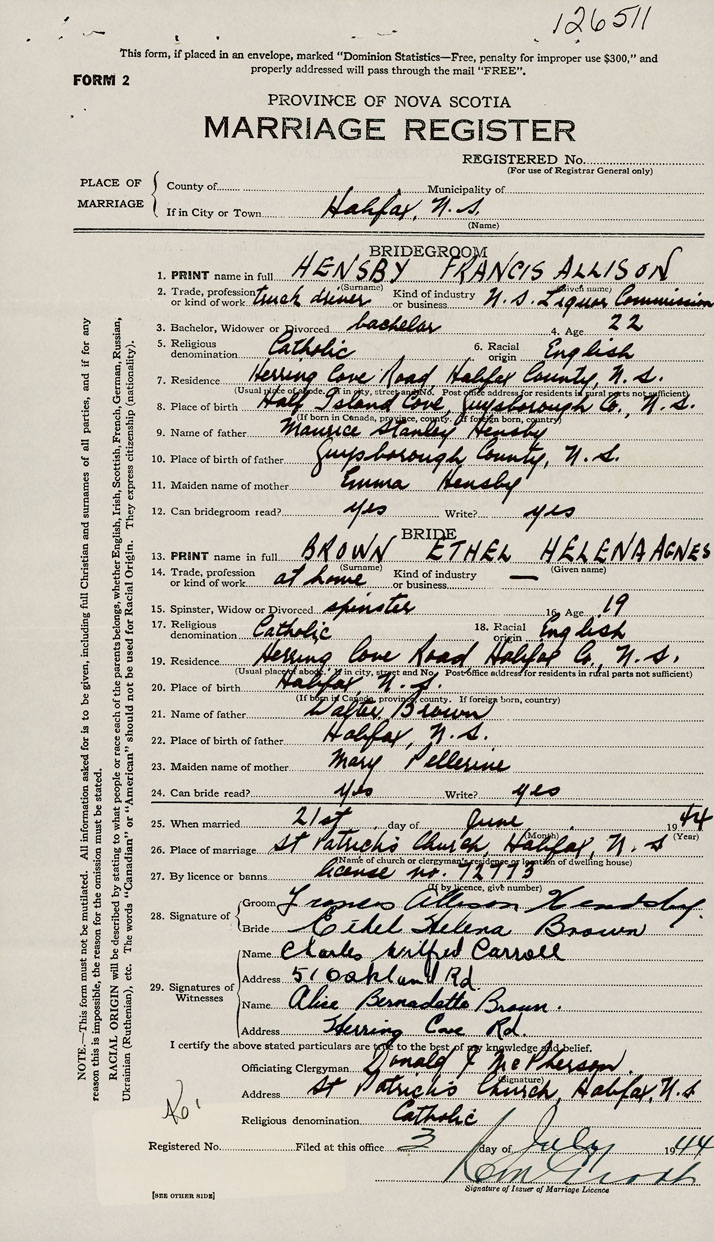 126511
This form, if placed in an envelope, marked "Dominion Statistics—Free, penalty for improper use $300," and
properly addressed will pass through the mail "FREE".
FORM 2
PROVINCE OF NOVA SCOTIA
MARRIAGE REGISTER
REGISTERED No.
(For use of Registrar General only)
PLACE OF MARRIAGE
County of Municipality of
If in City or Town Halifax, N.S.
(Name)
BRIDEGROOM
1. PRINT name in full HENSBY FRANCIS ALLISON
(Surname) (Given name)
2. Trade, profession or kind of work truck driver Kind of industry or business N.S. Liquor Commission
3. Bachelor, Widower or Divorced bachelor 4. Age 22
5. Religious denomination Catholic 6. Racial origin English
7. Residence Herring Cove Road, Halifax County, N.S.
(Usual place of abode. If in city, street and No. Post office address for residents in rural parts not sufficient)
8. Place of birth Half Island Cove, Guysborough Co., N.S.
(If born in Canada, province, county. If foreign born, country)
9. Name of father Maurice Stanley Hensby
10. Place of birth of father Guysborough County, N.S.
11. Maiden name of mother Emma Hensby
12. Can bridegroom read? yes Write? yes
BRIDE
13. PRINT name in full BROWN ETHEL HELENA AGNES
(Surname) (Given name)
14. Trade, profession or kind of work at home Kind of industry or business —
15. Spinster, Widow or Divorced spinster 16. Age 19
17. Religious denomination Catholic 18. Racial origin English
19. Residence Herring Cove Road Halifax Co., N.S.
(Usual place of abode. If in city, street and No. Post office address for residents in rural parts not sufficient)
20. Place of birth Halifax, N.S.
(If born in Canada, province, county. If foreign born, country)
21. Name of father Walter Brown
22. Place of birth of father Halifax, N.S.
23. Maiden name of mother Mary Pellerine
24. Can bride read? yes Write? yes
25. When married 21st day of June 1944
(Month) (Year)
26. Place of marriage St Patrick's Church, Halifax, N.S
(Name of church or clergyman's residence or location of dwelling house)
27. By licence or banns license no. 72773
(If by licence, give number)
28. Signature of
Groom Francis Allison Hendsby.
Bride Ethel Helena Brown
29. Signatures of Witnesses
Name Charles Wilfred Carroll
Address 51 Oakland Rd.
Name Alice Bernadette Brown.
Address Herring Cove Rd.
I certify the above stated particulars are true to the best of my knowledge and belief.
Officiating Clergyman Donald J McPherson.
(Signature)
Address St Patrick's Church, Halifax, N.S
Religious denomination Catholic
Registered No. Filed at this office 3 day of July 1944
Signature of Issuer of Marriage Licence
[SEE OTHER SIDE]
NOTE.—This form must not be mutilated. All information asked for is to be given, including full Christian and surnames of all parties, and if for any
reason this is impossible, the reason for the omission must be stated.
RACIAL ORIGIN will be described by stating to what people or race each of the parents belongs, whether English, Irish, Scottish, French, German, Russian,
Ukrainian (Ruthenian), etc. The words "Canadian" or "American" should not be used for Racial Origin. They express citizenship (nationality).